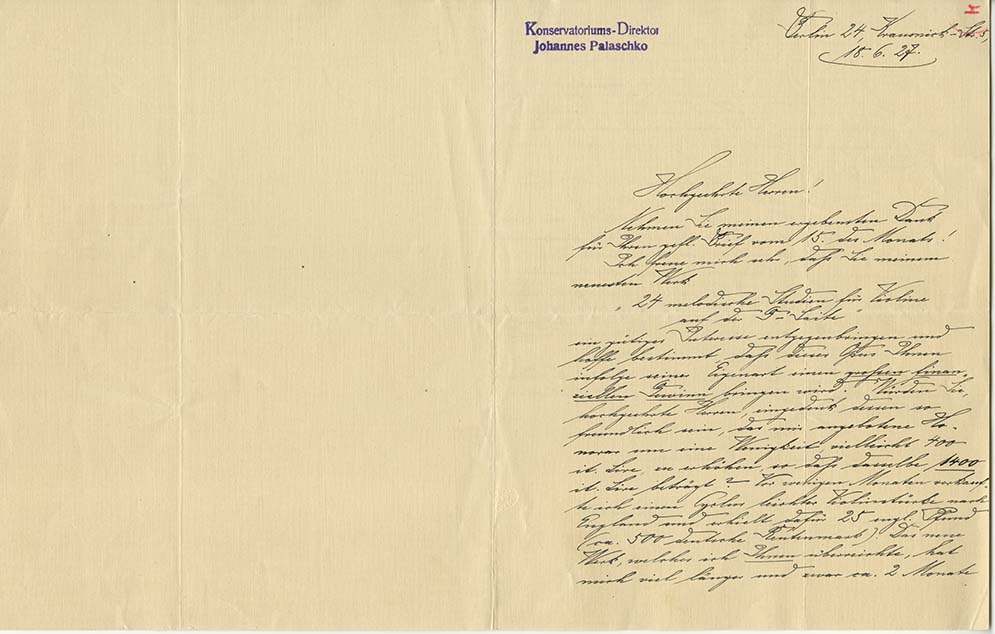 Konservatoriums-Direktor
Johannes Palaschko
Berlin 24, Krausnick-Str. 5,
18. 6. 27.
Hochgeehrte Herren!
Nehmen Sie meinen ergebensten Dank
für Ihren gefl. Brief vom 15. des Monats!
Ich freue mich sehr, daß Sie meinem
neuesten Werk
"24 melodische Studien für Violine
auf der G-Saite"
ein gütiges Interesse entgegenbringen und
hoffe bestimmt, daß dieses Opus Ihnen
infolge seiner Eigenart einen großen finan-
ziellen Gewinn bringen wird. Würden Sie,
hochgeehrte Herren, eingedenk dessen so
freundlich sein, das mir angebotene Ho-
norar um eine Wenigkeit, vielleicht 400
it. Lire, zu erhöhen, so daß dasselbe 1400
it. Lire beträgt? Vor wenigen Monaten verkauf-
te ich einen Cyclus leichter Violinstücke nach
England und erhielt dafür 25 engl. Pfund
(ca. 500 deutsche Rentenmark). Das neue
Werk, welches ich Ihnen überreichte, hat
mich viel länger und zwar ca. 2 Monate